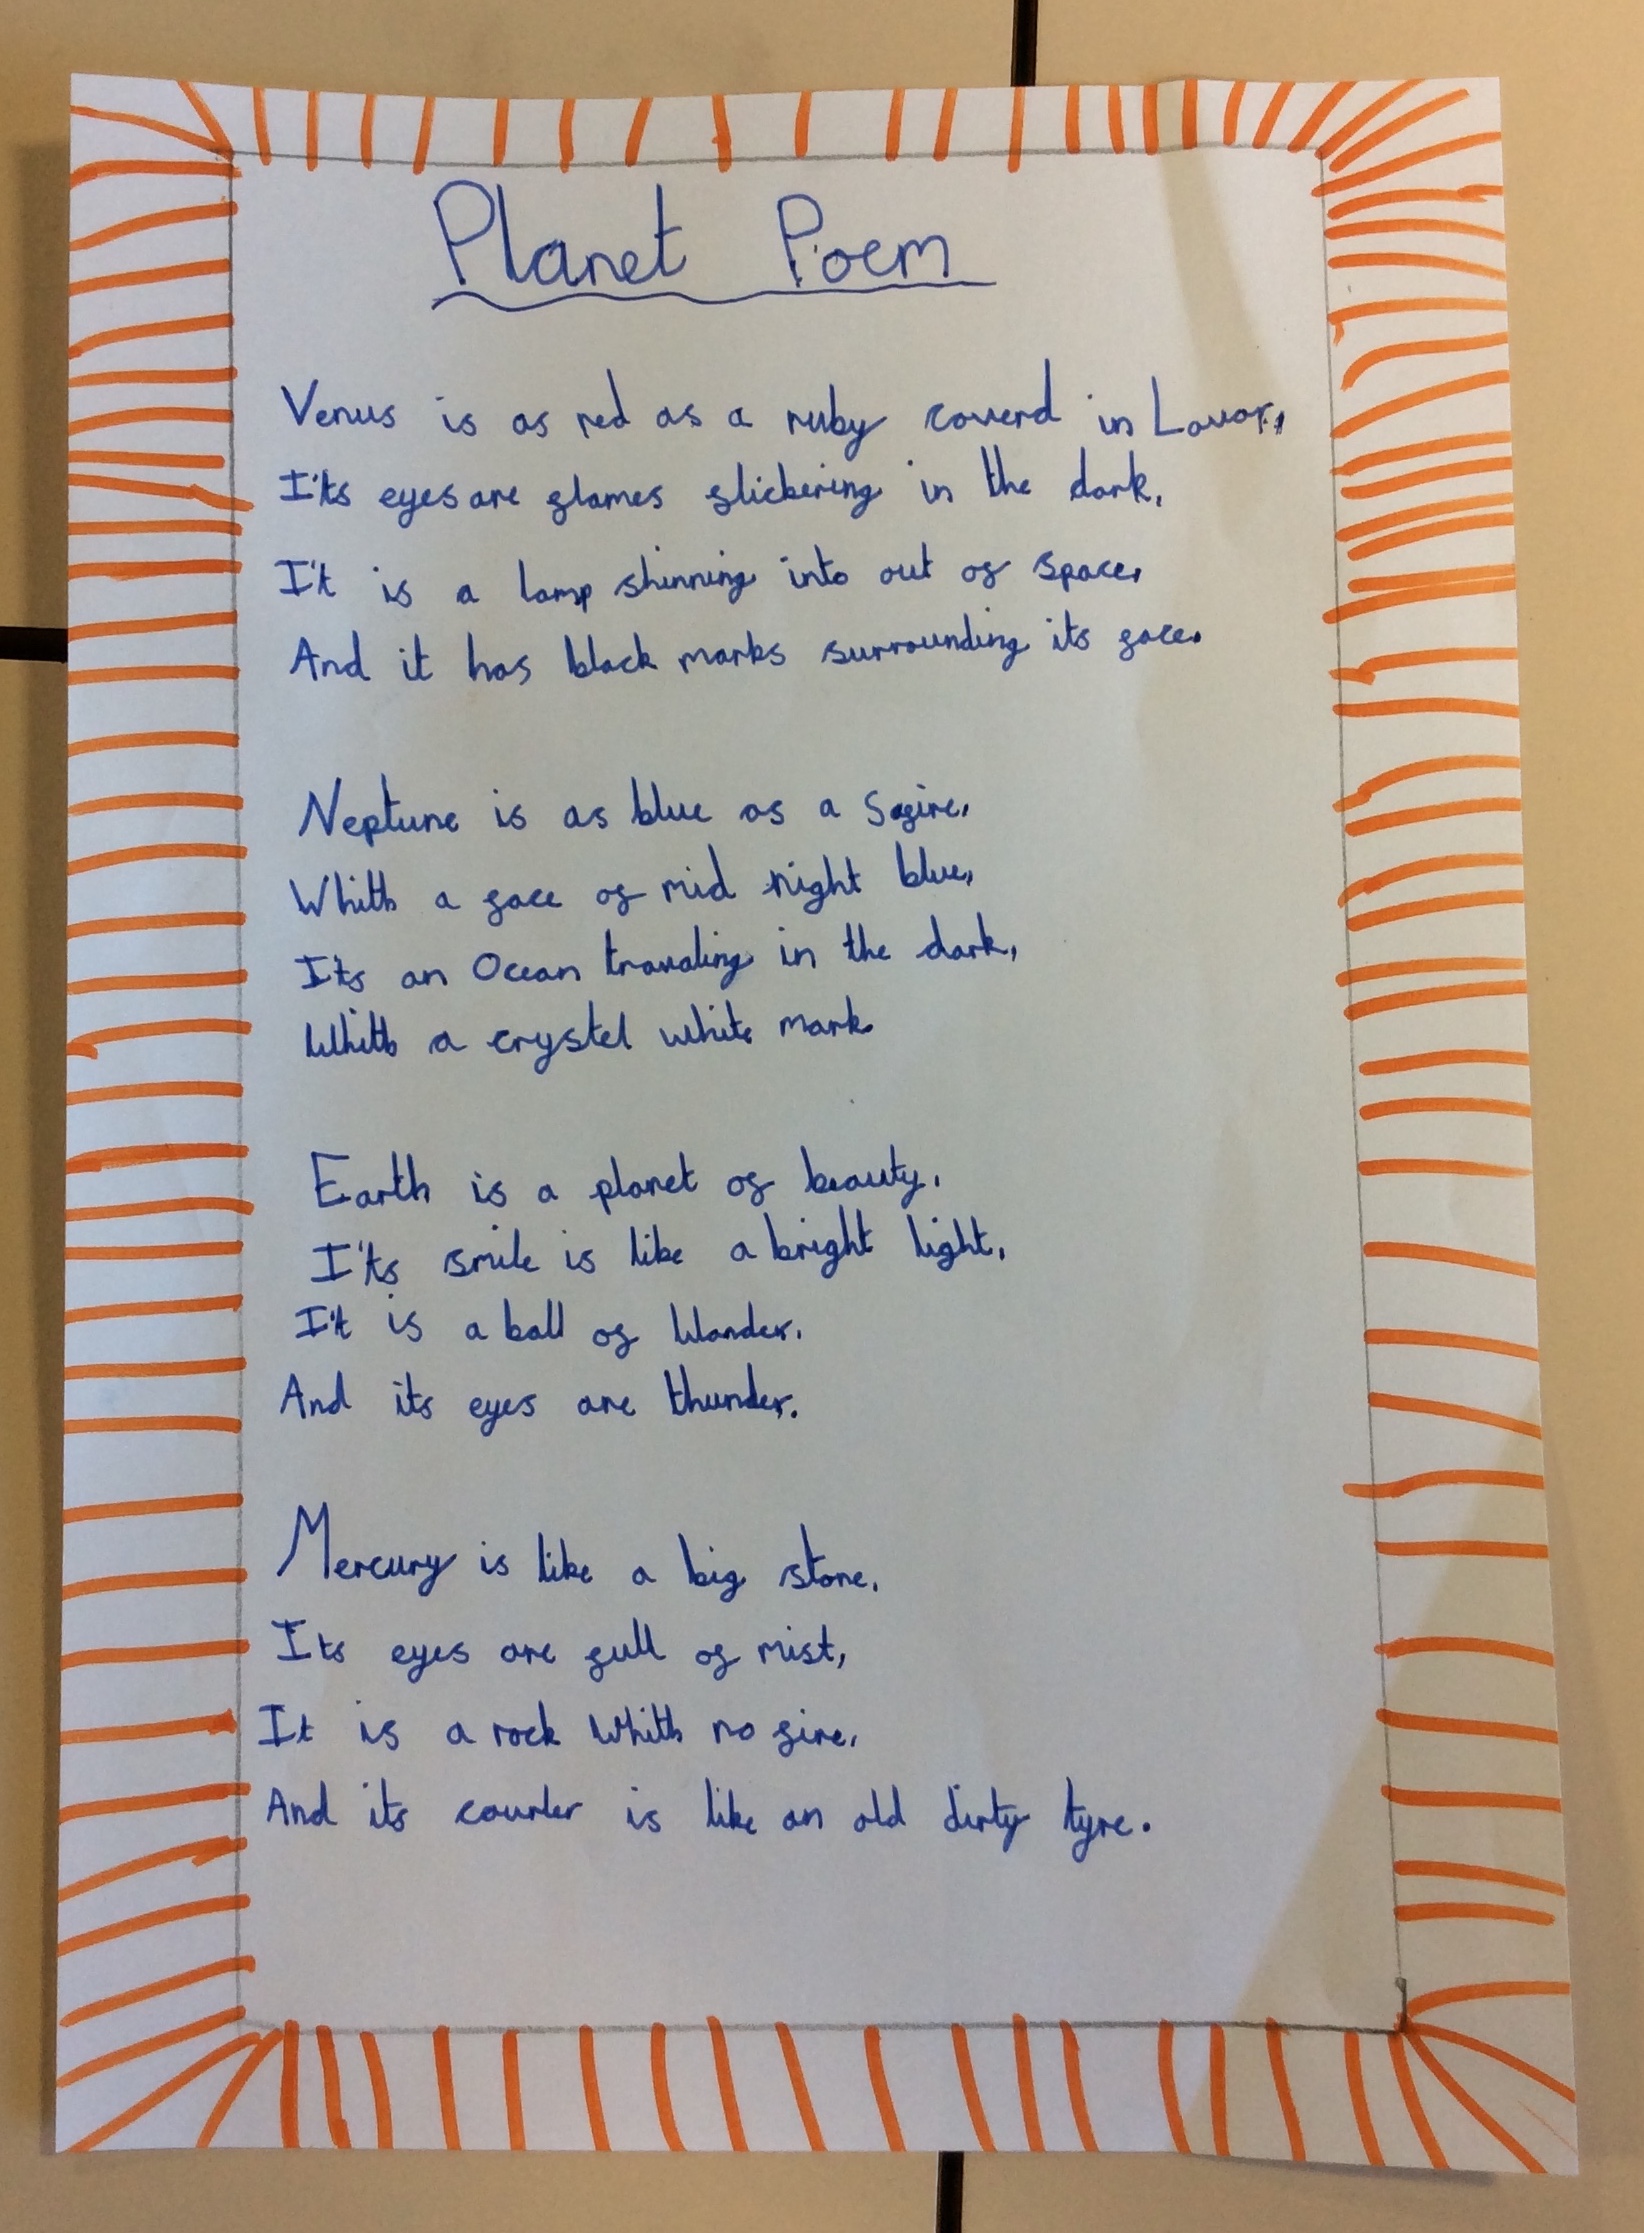 Planet Poem
Venus is as red as a ruby coverd in Lavar,
I'ts eyes are flames flickering in the dark,
I't is a lamp shinning into out of space,
And it has black marks surrounding its face.
Neptune is as blue as a Safire,
Whith a face of mid night blue,
Its an Ocean travaling in the dark,
Whith a crystel white mark
Earth is a planet of beauty,
I'ts smile is like a bright light,
I't is a ball of Wonder,
And its eyes are thunder.
Mercury is like a big stone,
Its eyes are full of mist,
It is a rock Whith no fire,
And its courler is like an old dirty tyre.